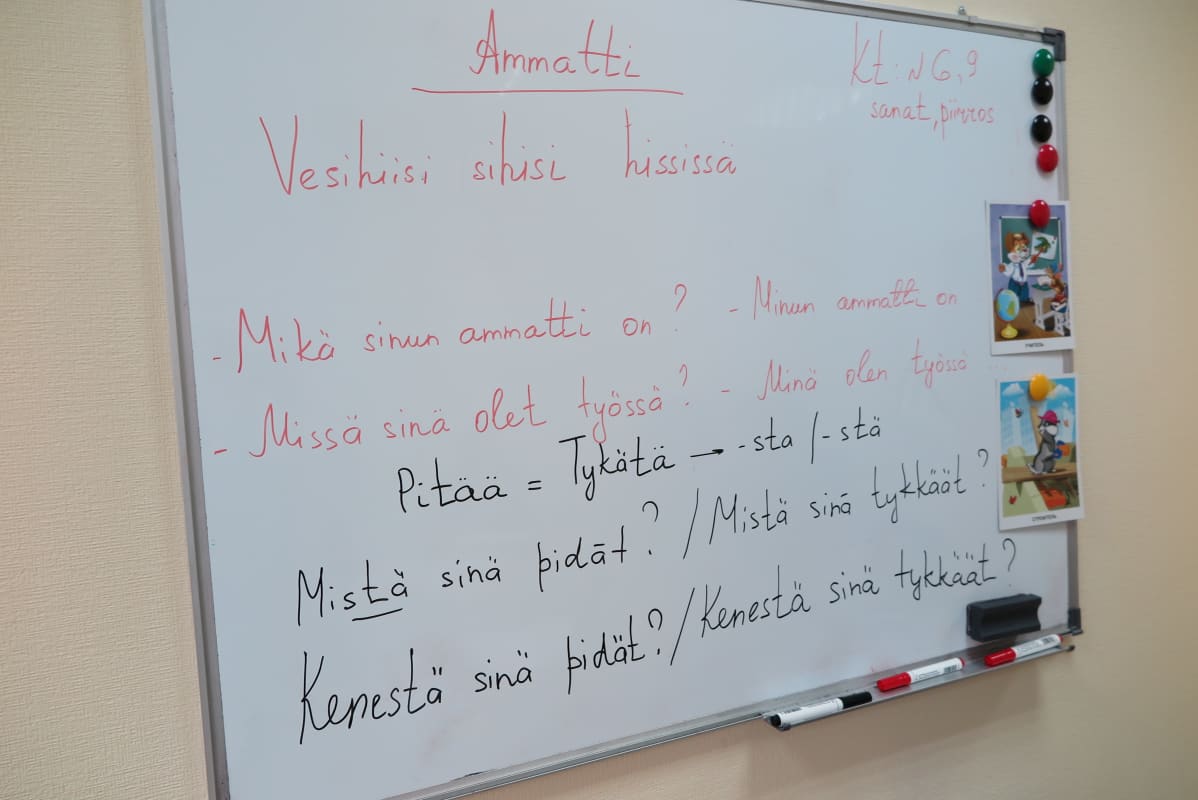 Ammatti
Kt: N 6, 9
sanat, piirros
Vesihiisi sihisi hississä
- Mikä sinun ammatti on? - Minun ammatti on
- Missä sinä olet työssä? - Minä olen työssä ...
Pitää = Tykätä → -sta / -stä
Mistä sinä pidät? / Mistä sinä tykkäät?
Kenestä sinä pidät? / Kenestä sinä tykkäät?
УЧИТЕЛЬ
СТРОИТЕЛЬ